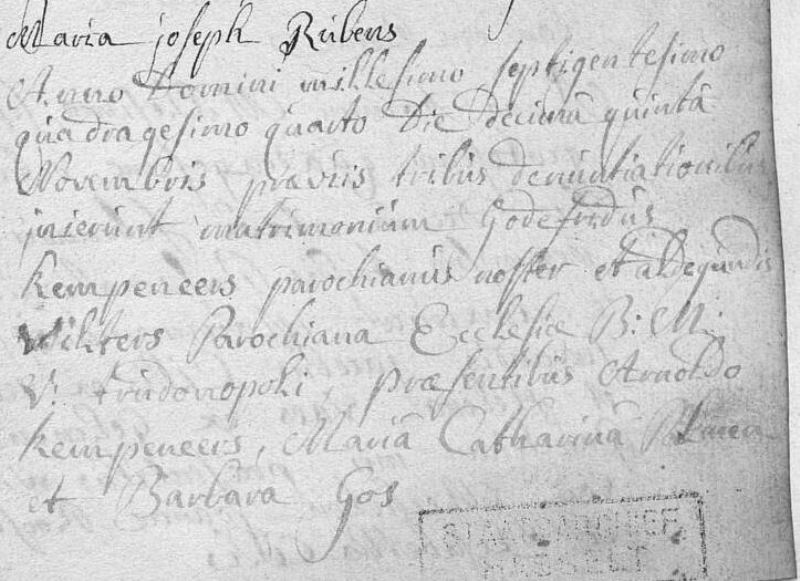 Maria joseph Rubens
Anno Domini millesimo septigentesimo
quadragesimo quarto Die decimâ quintâ
Novembris præviis tribus denuntiationibus
inierunt matrimonium Godefridus
Kempeneers parochianus noster et aldegundis
Parochiana Ecclesiæ B: M:
V: trudonopoli, præsentibus Arnoldo
Kempeneers, Mariâ Catharinâ
et Barbara Gos
HASSELT